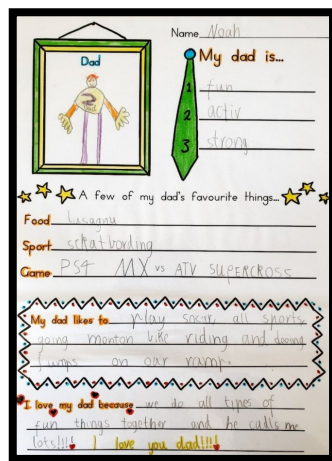 Name Noah
Dad
My dad is...
1 fun
2 activ
3 strong
A few of my dad's favourite things...
Food lasagnu
Sport sckatbording
Game PS4 MX vs ATV SUPERCROSS
My dad likes to play socur, all sports,
going monton bike riding and dooing
jumps on our ramp.
I love my dad because we do all tipes of
fun things together and he cudls me
lots!!!! I love you dad!!!